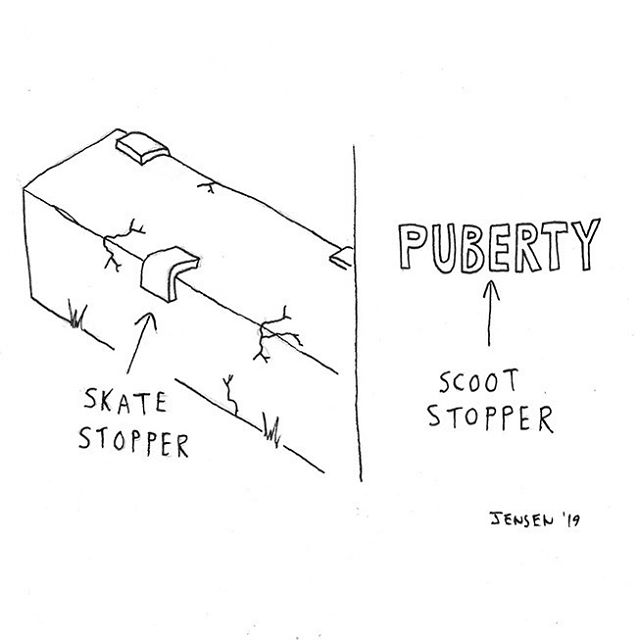 SKATE
STOPPER
PUBERTY
SCOOT
STOPPER
JENSEN '19